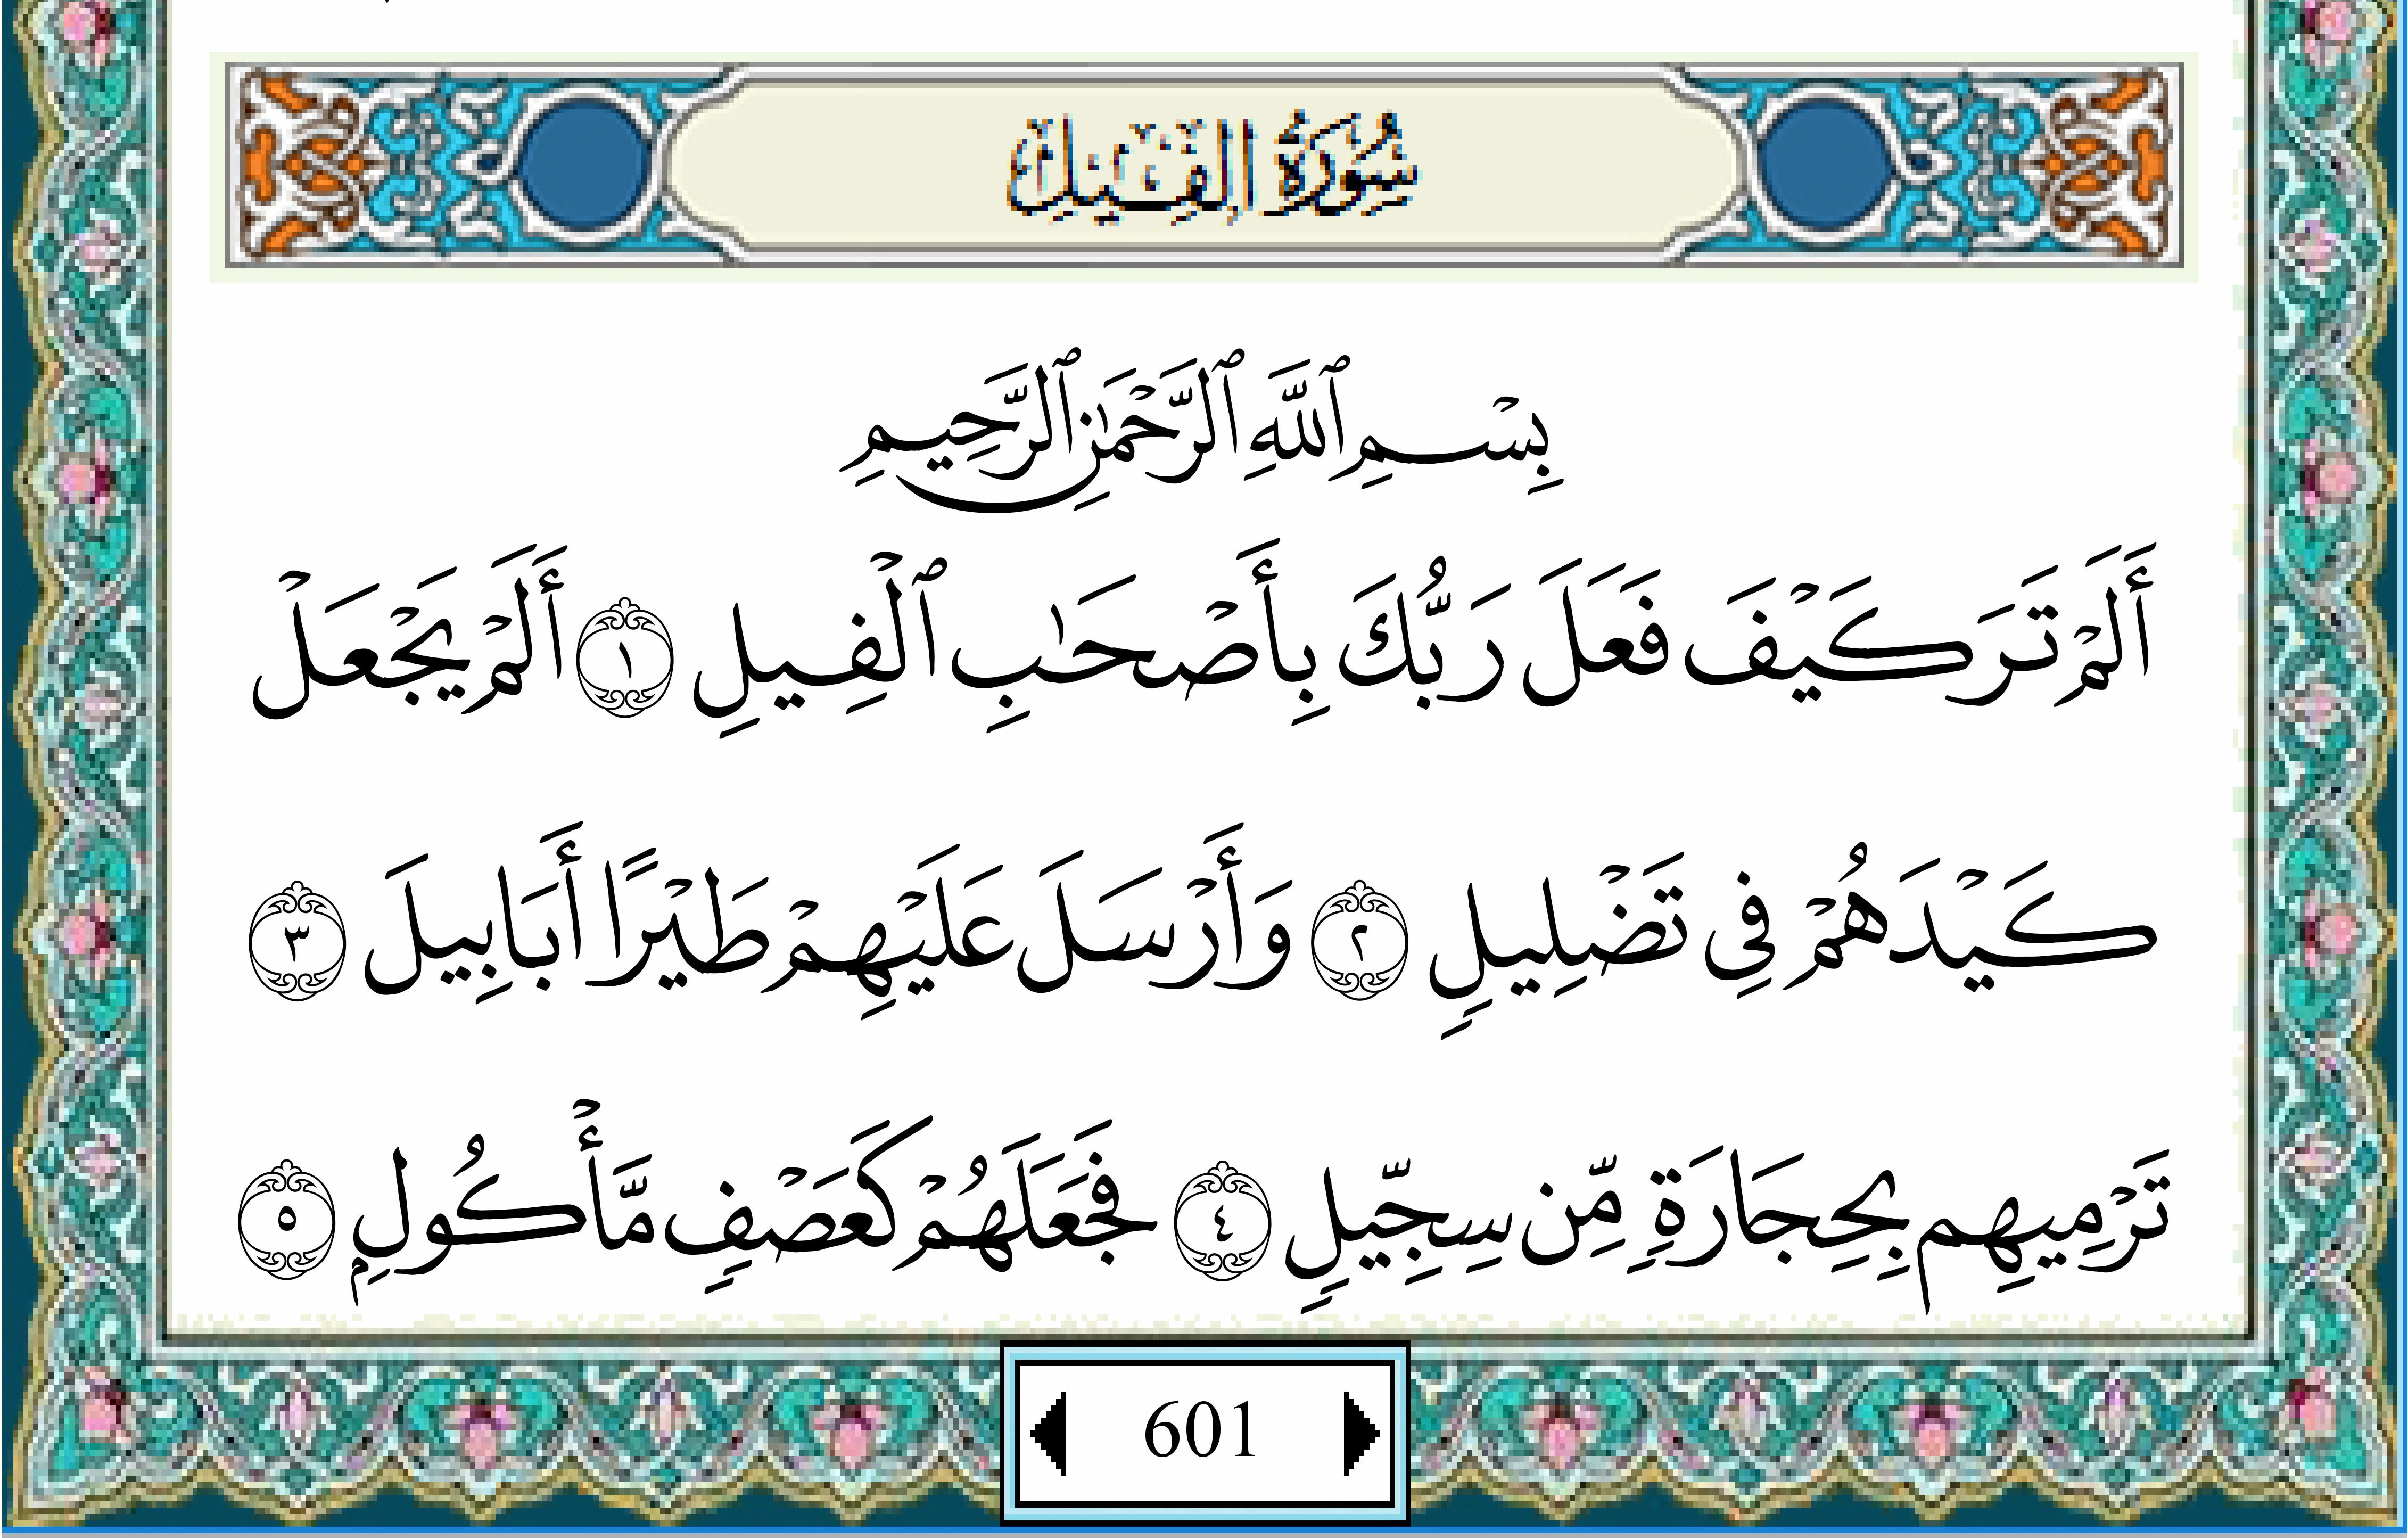 سُورَةُ الفِيلِ
بِسْمِ ٱللَّهِ ٱلرَّحْمَٰنِ ٱلرَّحِيمِ
أَلَمْ تَرَ كَيْفَ فَعَلَ رَبُّكَ بِأَصْحَٰبِ ٱلْفِيلِ ١ أَلَمْ يَجْعَلْ
كَيْدَهُمْ فِى تَضْلِيلٍ ٢ وَأَرْسَلَ عَلَيْهِمْ طَيْرًا أَبَابِيلَ ٣
تَرْمِيهِم بِحِجَارَةٍ مِّن سِجِّيلٍ ٤ فَجَعَلَهُمْ كَعَصْفٍ مَّأْكُولٍۭ ٥
601